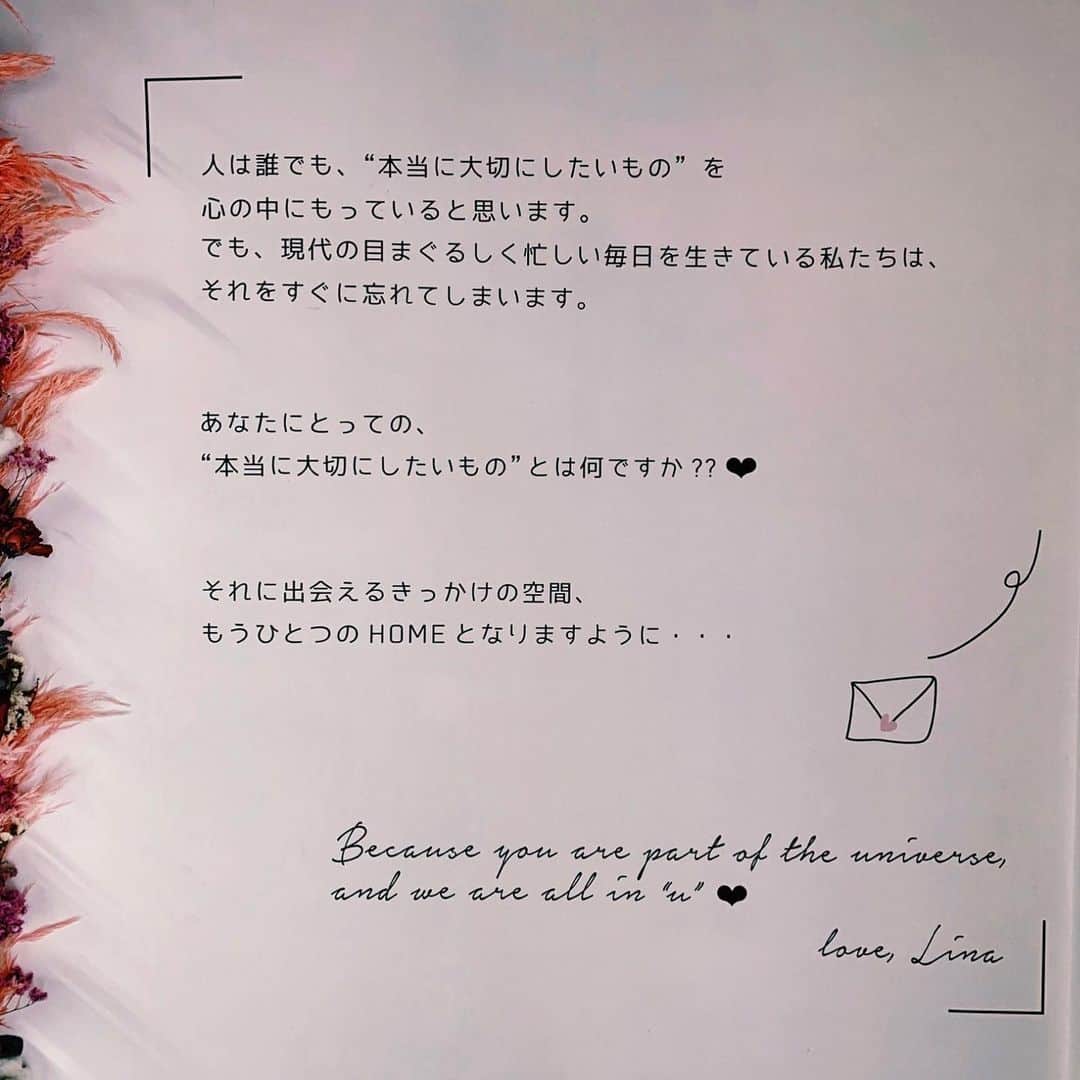 人は誰でも、“本当に大切にしたいもの” を
心の中にもっていると思います。
でも、現代の目まぐるしく忙しい毎日を生きている私たちは、
それをすぐに忘れてしまいます。
あなたにとっての、
“本当に大切にしたいもの”とは何ですか??❤
それに出会えるきっかけの空間、
もうひとつのHOMEとなりますように・・・
Because you are part of the universe,
and we are all in "u" ❤
love, Lina